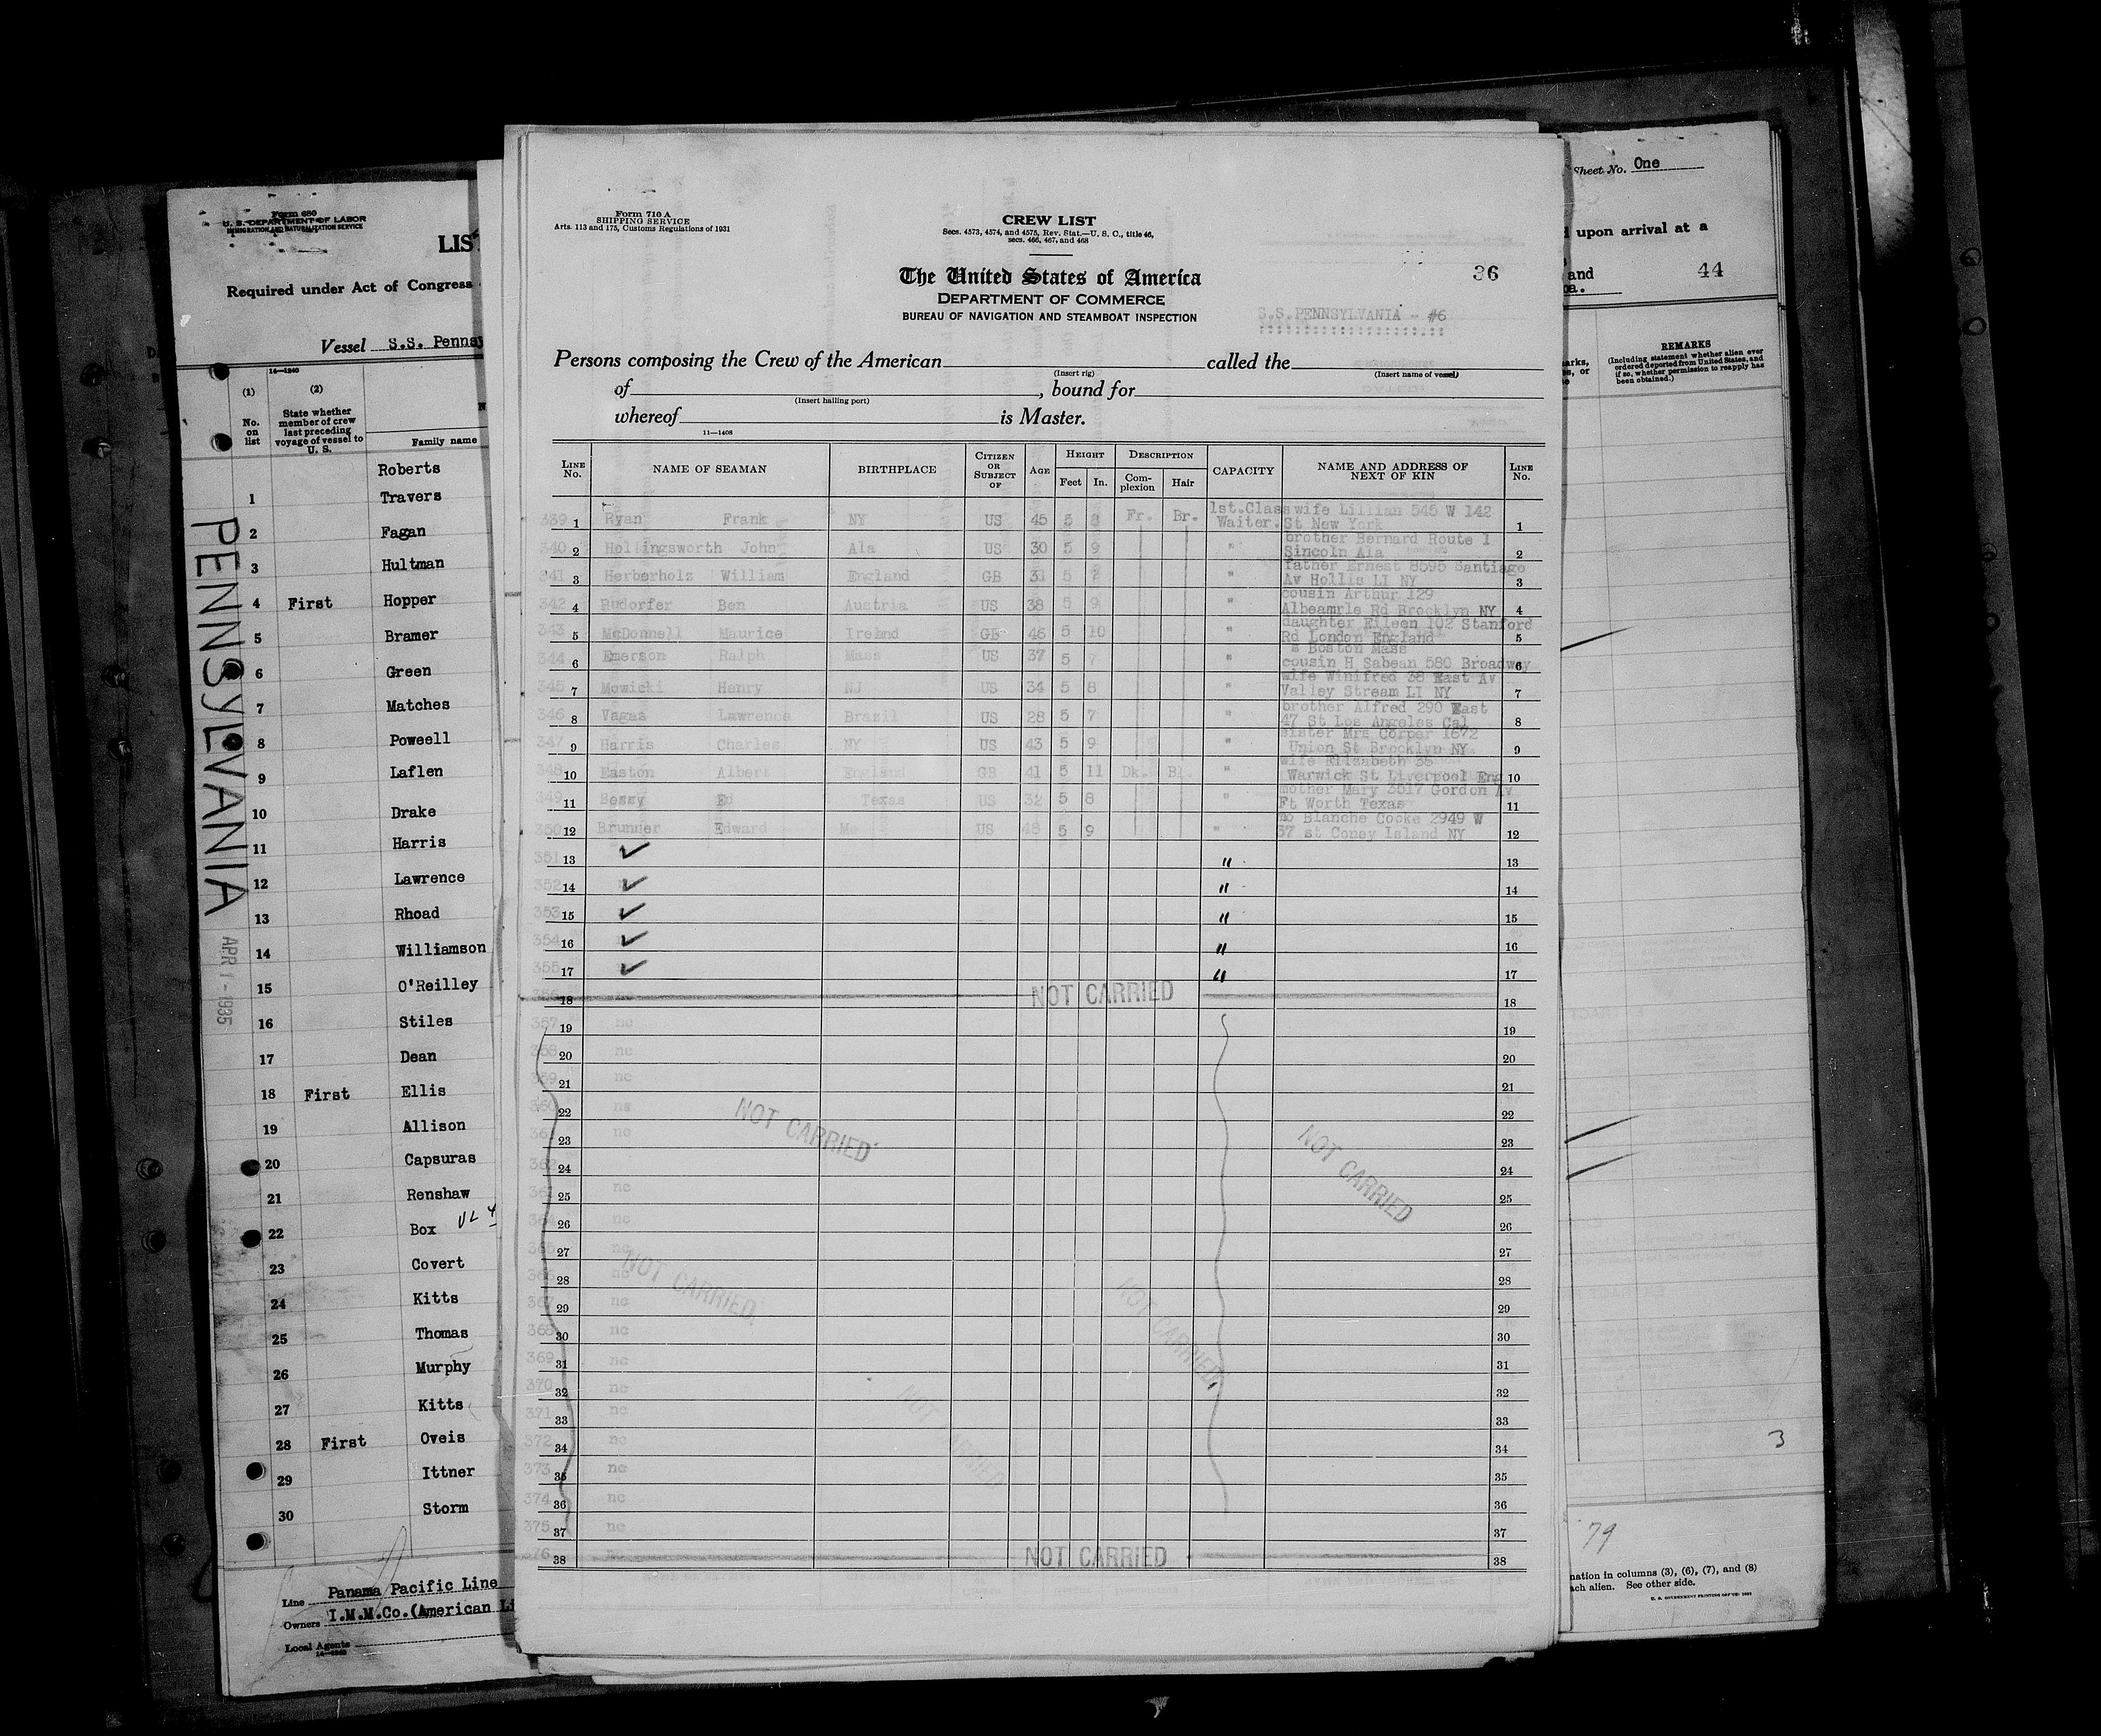 Form 680
U. S. DEPARTMENT OF LABOR
IMMIGRATION AND NATURALIZATION SERVICE
LIS
Required under Act of Congress
Vessel S.S. Pennsy
14—1240
(1) (2)
No. on list
State whether member of crew last preceding voyage of vessel to U. S.
Family name
Roberts
1 Travers
2 Fagan
3 Hultman
4 First Hopper
5 Bramer
6 Green
7 Matches
8 Poweell
9 Laflen
10 Drake
11 Harris
12 Lawrence
13 Rhoad
14 Williamson
15 O'Reilley
16 Stiles
17 Dean
18 First Ellis
19 Allison
20 Capsuras
21 Renshaw
22 Box
23 Covert
24 Kitts
25 Thomas
26 Murphy
27 Kitts
28 First Oveis
29 Ittner
30 Storm
PENNSYLVANIA
APR 1 - 1935
Line Panama Pacific Line
Owners I.M.M.Co.(American Li
Local Agents
Form 710 A
SHIPPING SERVICE
Arts. 113 and 175, Customs Regulations of 1931
CREW LIST
Secs. 4573, 4574, and 4575, Rev. Stat.—U. S. C., title 46,
secs. 466, 467, and 468
The United States of America
DEPARTMENT OF COMMERCE
BUREAU OF NAVIGATION AND STEAMBOAT INSPECTION
36
S.S.PENNSYLVANIA - #6
Persons composing the Crew of the American called the
(Insert rig) (Insert name of vessel)
of , bound for
(Insert hailing port)
whereof is Master.
11—1408
LINE No. NAME OF SEAMAN BIRTHPLACE CITIZEN OR SUBJECT OF AGE HEIGHT Feet In. DESCRIPTION Complexion Hair CAPACITY NAME AND ADDRESS OF NEXT OF KIN LINE No.
339 1 Ryan Frank NY US 45 5 8 Fr. Br. 1st.Class Waiter. wife Lillian 545 W 142 St New York 1
340 2 Hollingsworth John Ala US 30 5 9 " brother Bernard Route 1 Sincoln Ala 2
341 3 Herberholz William England GB 31 5 7 " father Ernest 8595 Santiago Av Hollis LI NY 3
342 4 Rudorfer Ben Austria US 38 5 9 " cousin Arthur 129 Albeamrle Rd Brooklyn NY 4
343 5 McDonnell Maurice Ireland GB 46 5 10 " daughter Eileen 102 Stanford Rd London England 5
344 6 Emerson Ralph Mass US 37 5 7 " Boston Mass cousin H Sabean 580 Broadway 6
345 7 Mowicki Henry NJ US 34 5 8 " wife Winifred 38 East Av Valley Stream LI NY 7
346 8 Vagas Lawrence Brazil US 28 5 7 " brother Alfred 290 East 47 St Los Angeles Cal 8
347 9 Harris Charles NY US 43 5 9 " sister Mrs Corper 1672 Union St Brooklyn NY 9
348 10 Easton Albert England GB 41 5 11 Dk. Bl. " wife Elizabeth 35 Warwick St Liverpool Eng 10
349 11 Ed Texas US 32 5 8 " mother Mary 3517 Gordon Av Ft Worth Texas 11
350 12 Brunner Edward US 48 5 9 " Blanche Cooke 2949 W 37 st Coney Island NY 12
351 13 ✓ " 13
352 14 ✓ " 14
353 15 ✓ " 15
354 16 ✓ " 16
355 17 ✓ " 17
356 18 NOT CARRIED 18
357 19 nc 19
358 20 nc 20
359 21 nc 21
360 22 22
361 23 nc 23
362 24 24
25 nc 25
26 nc 26
27 nc 27
28 nc 28
367 29 nc 29
368 30 nc 30
369 31 nc 31
370 32 nc 32
371 33 nc 33
372 34 nc 34
373 35 nc 35
374 36 nc 36
375 37 nc 37
376 38 NOT CARRIED 38
NOT CARRIED
NOT CARRIED
NOT CARRIED
NOT CARRIED
NOT CARRIED
Sheet No. One
upon arrival at a
and
44
REMARKS
(Including statement whether alien ever ordered deported from United States, and if so, whether permission to reapply has been obtained.)
3
79
nation in columns (3), (6), (7), and (8)
ach alien. See other side.
U. S. GOVERNMENT PRINTING OFFICE